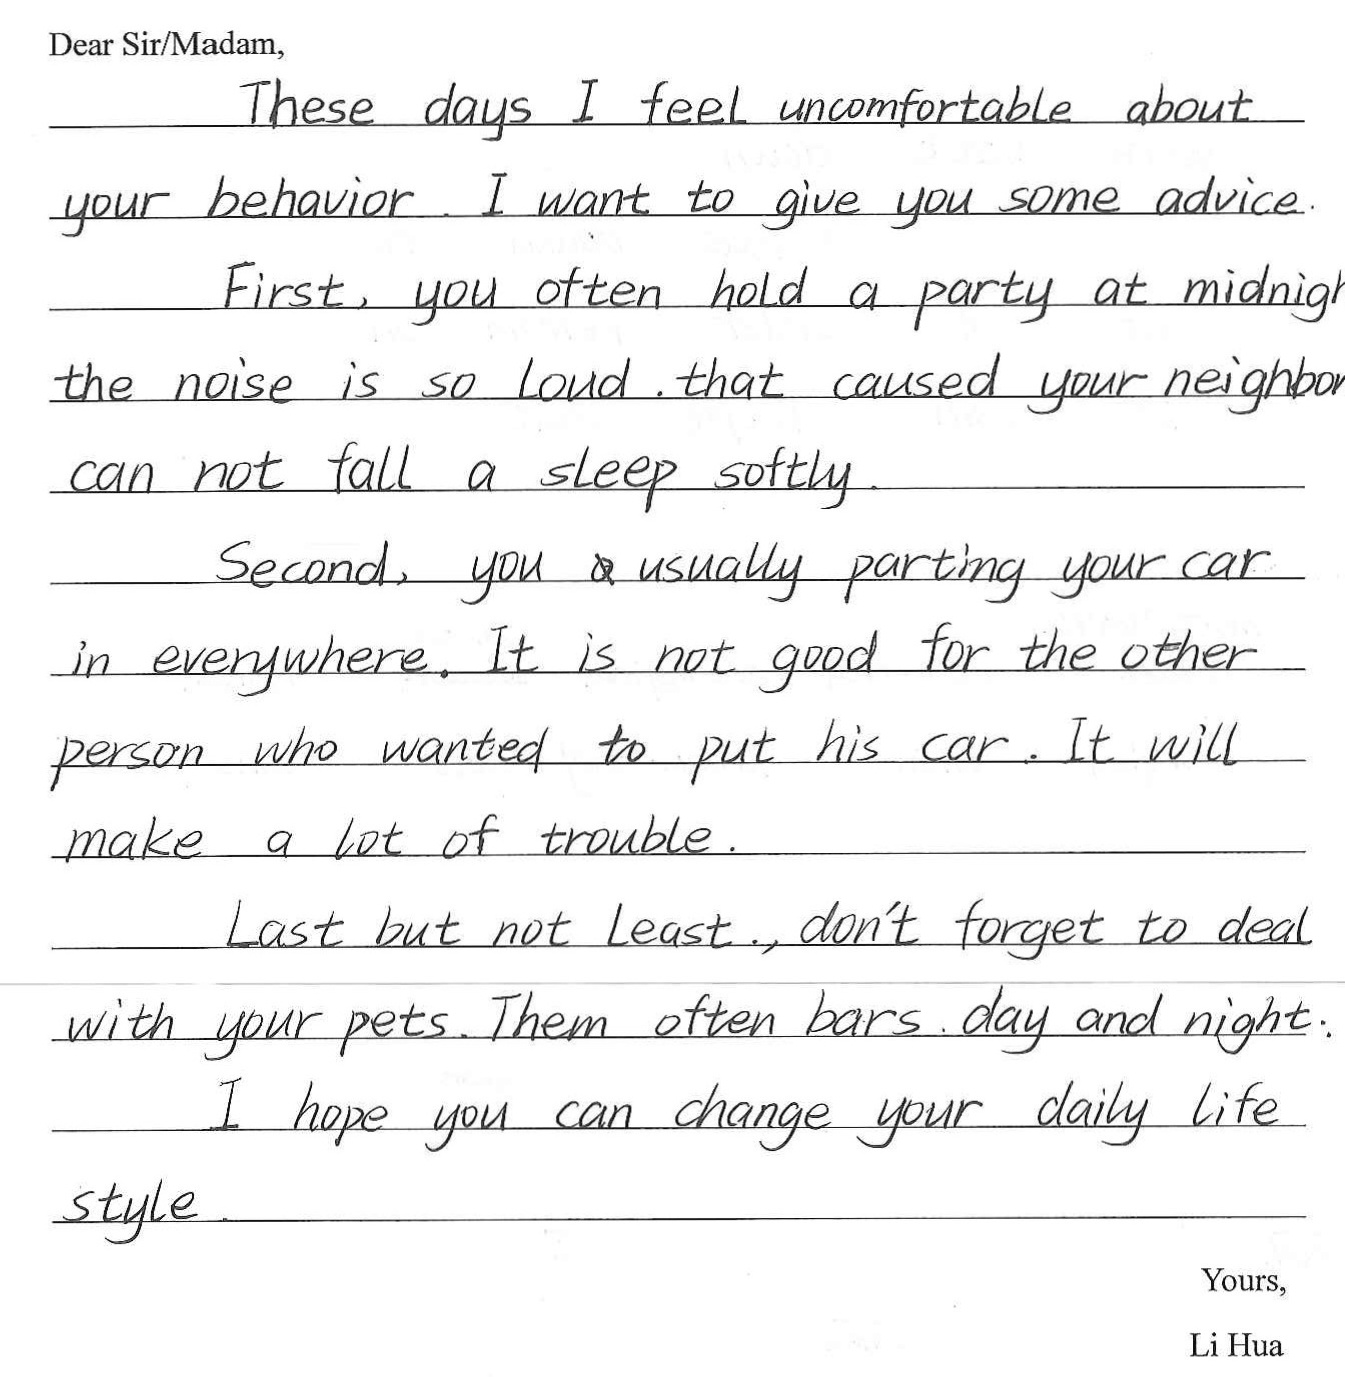 Dear Sir/Madam,
These days I feel uncomfortable about
your behavior. I want to give you some advice.
First, you often hold a party at midnigh
the noise is so loud. that caused your neighbor
can not fall a sleep softly.
Second, you usually parting your car
in everywhere. It is not good for the other
person who wanted to put his car. It will
make a lot of trouble.
Last but not least., don't forget to deal
with your pets. Them often bars. day and night.
I hope you can change your daily life
style.
Yours,
Li Hua